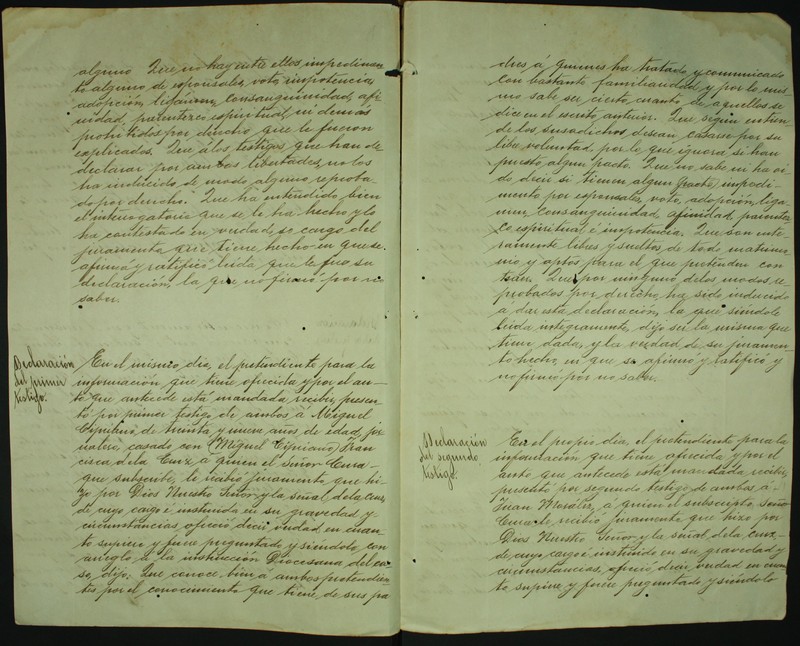 alguno Que no hay entre ellos impedimen
to alguno de esponsales, voto, impotencia,
adopción, ligamen, consanguinidad, afi
nidad, parentezco espiritual, ni demás
prohibidos por derecho que le fueron
explicados. Que á los testigos que han de
declarar por ambas libertades, no los
ha inducido de modo alguno reproba
do por derecho. Que ha entendido bien
el interrogatorio que se le ha hecho y lo
ha contestado en verdad, so cargo del
juramento que tiene hecho en que se
afirmó y ratificó leida que le fue su
declaración, la que no firmó por no
saber.
Declaración
del primer
testigo.
En el mismo dia, el pretendiente para la
información que tiene ofrecida y por el au-
to que antecede está mandada recibir, presen
tó por primer testigo de ambos á Miguel
Cipriano de treinta y nueve años de edad,
casado con (Miguel Cipriano) Fran
cisca de la Cruz, á quien el Señor Cura
que subscribe, le recibió juramento que hi
zo por Dios Nuestro Señor y la señal de la cruz,
de cuyo cargo é instruido en su gravedad y
circunstancias, ofreció decir verdad en cuan
to supiere y fuere preguntado y siéndolo con
arreglo á la instrucción Diocesana del ca
so, dijo: Que conoce bien á ambos pretendien
tes por el conocimiento que tiene de sus pa
dres á quienes ha tratado y comunicado
con bastante familiaridad y por lo mis
mo sabe ser cierto cuanto de aquellos se
dice en el escrito anterior. Que segun entien
de los susodichos desean casarse por su
libre voluntad, por lo que ignora si han
puesto algun pacto. Que no sabe ni ha oi
do decir si tienen algun (pacto) impedi-
mento por esponsales, voto, adopción, liga
men, consanguinidad, afinidad, parentez
co espiritual é impotencia. Que son ente
ramente libres y sueltos de todo matrimo
nio y aptos para el que pretenden con
traer. Que por ninguno de los modos re
probados por derecho ha sido inducido
á dar esta declaración, la que siendole
leida integramente, dijo ser la misma que
tiene dada, y la verdad de su juramen-
to hecho, en que se afirmó y ratificó y
no firmó por no saber.
Declaración
del segundo
testigo.
En el propio dia, el pretendiente para la
información que tiene ofrecida y por el
auto que antecede está mandada recibir,
presentó por segundo testigo de ambos á
Juan Morales, á quien el subscripto Señor
Cura le recibió juramento que hizo por
Dios Nuestro Señor y la señal de la cruz
de cuyo cargo é instruido en su gravedad y
circunstancias, ofreció decir verdad en cuan
to supiere y fuere preguntado y siéndolo